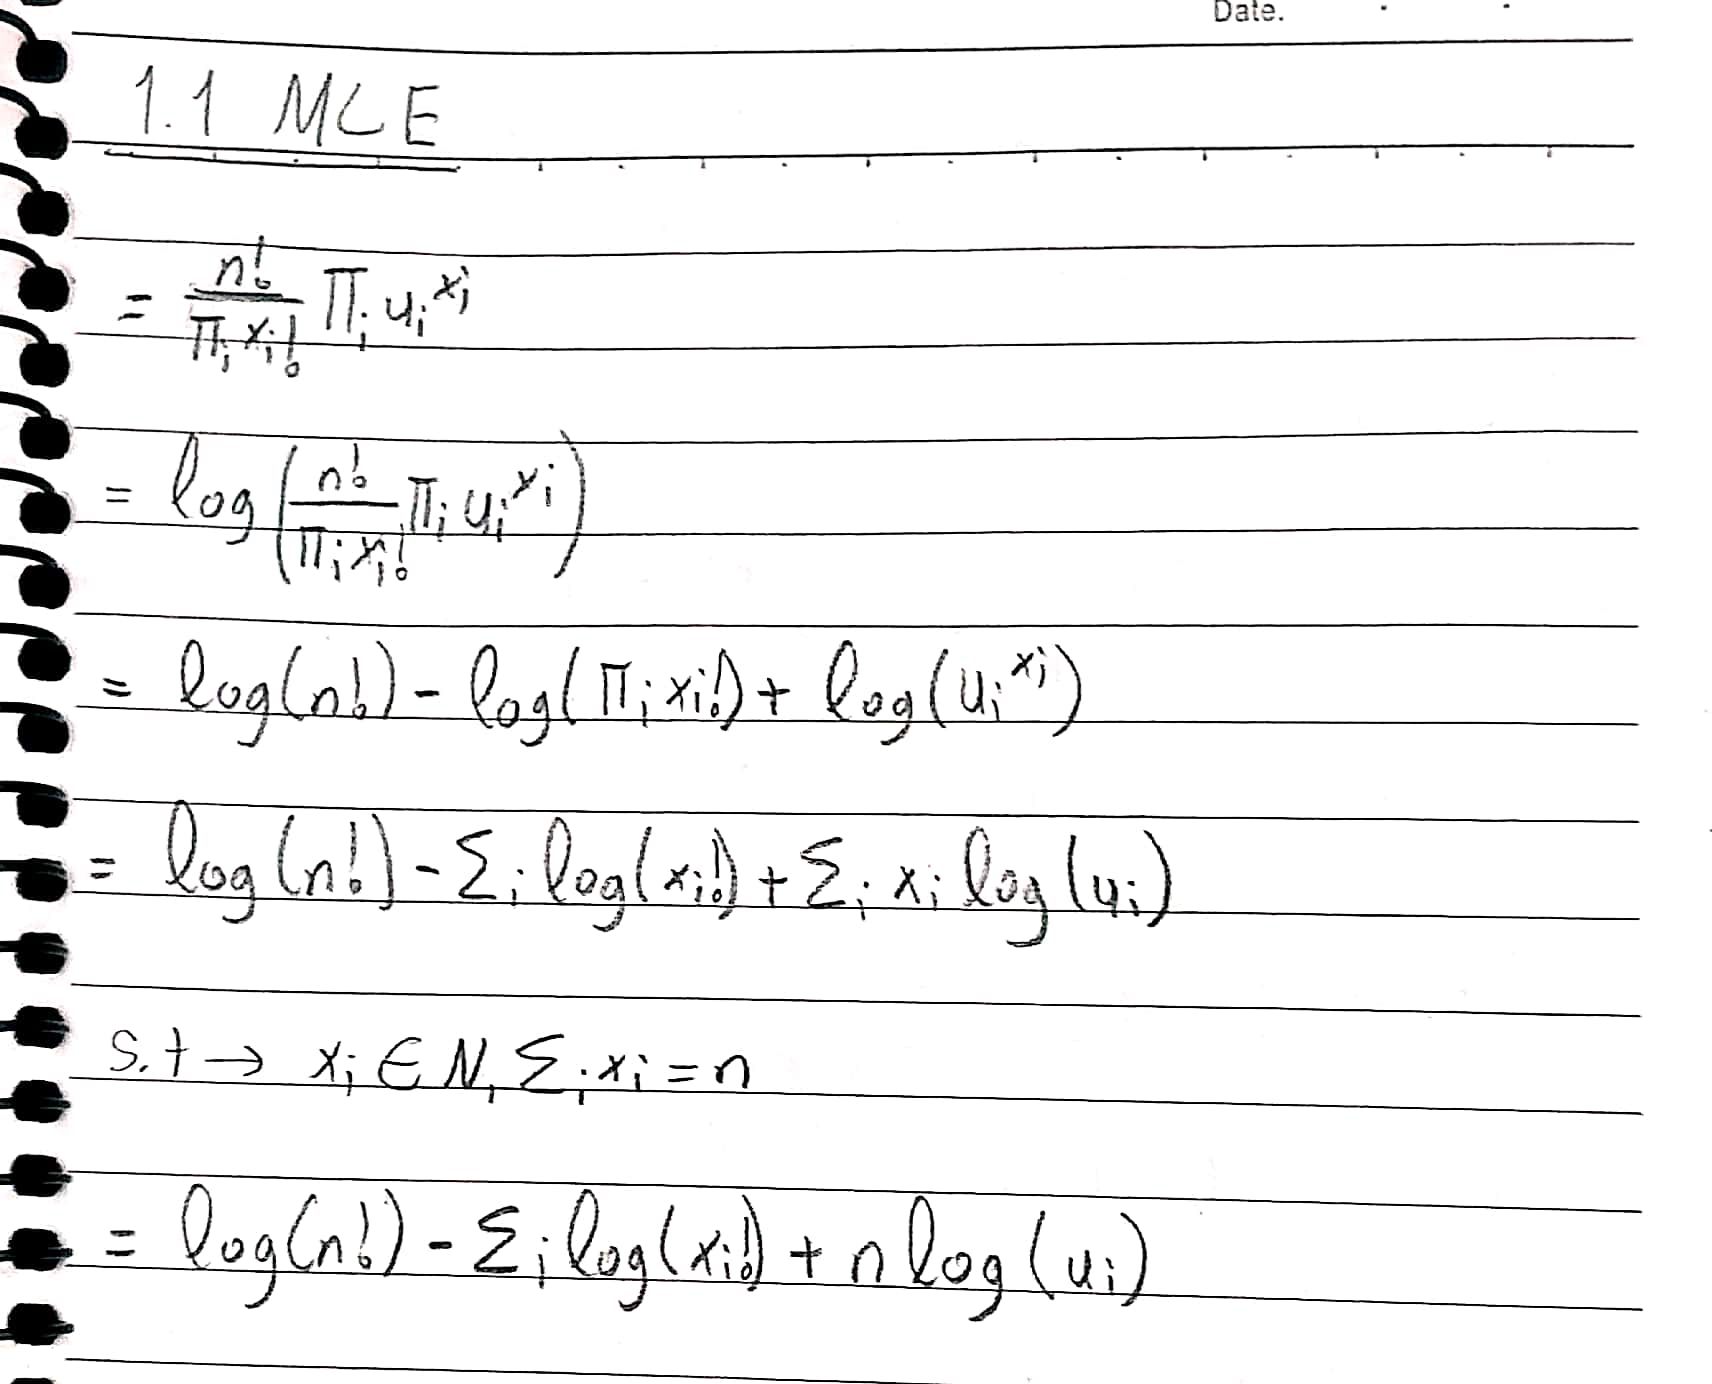 Date.
1.1 MLE
= n!/∏ᵢxᵢ! ∏ᵢuᵢ^xᵢ
= log(n!/∏ᵢxᵢ! ∏ᵢuᵢ^xᵢ)
= log(n!) - log(∏ᵢxᵢ!) + log(uᵢ^xᵢ)
= log(n!) - Σᵢ log(xᵢ!) + Σᵢ xᵢ log(uᵢ)
s.t → xᵢ ∈ N, Σᵢxᵢ = n
= log(n!) - Σᵢ log(xᵢ!) + n log(uᵢ)